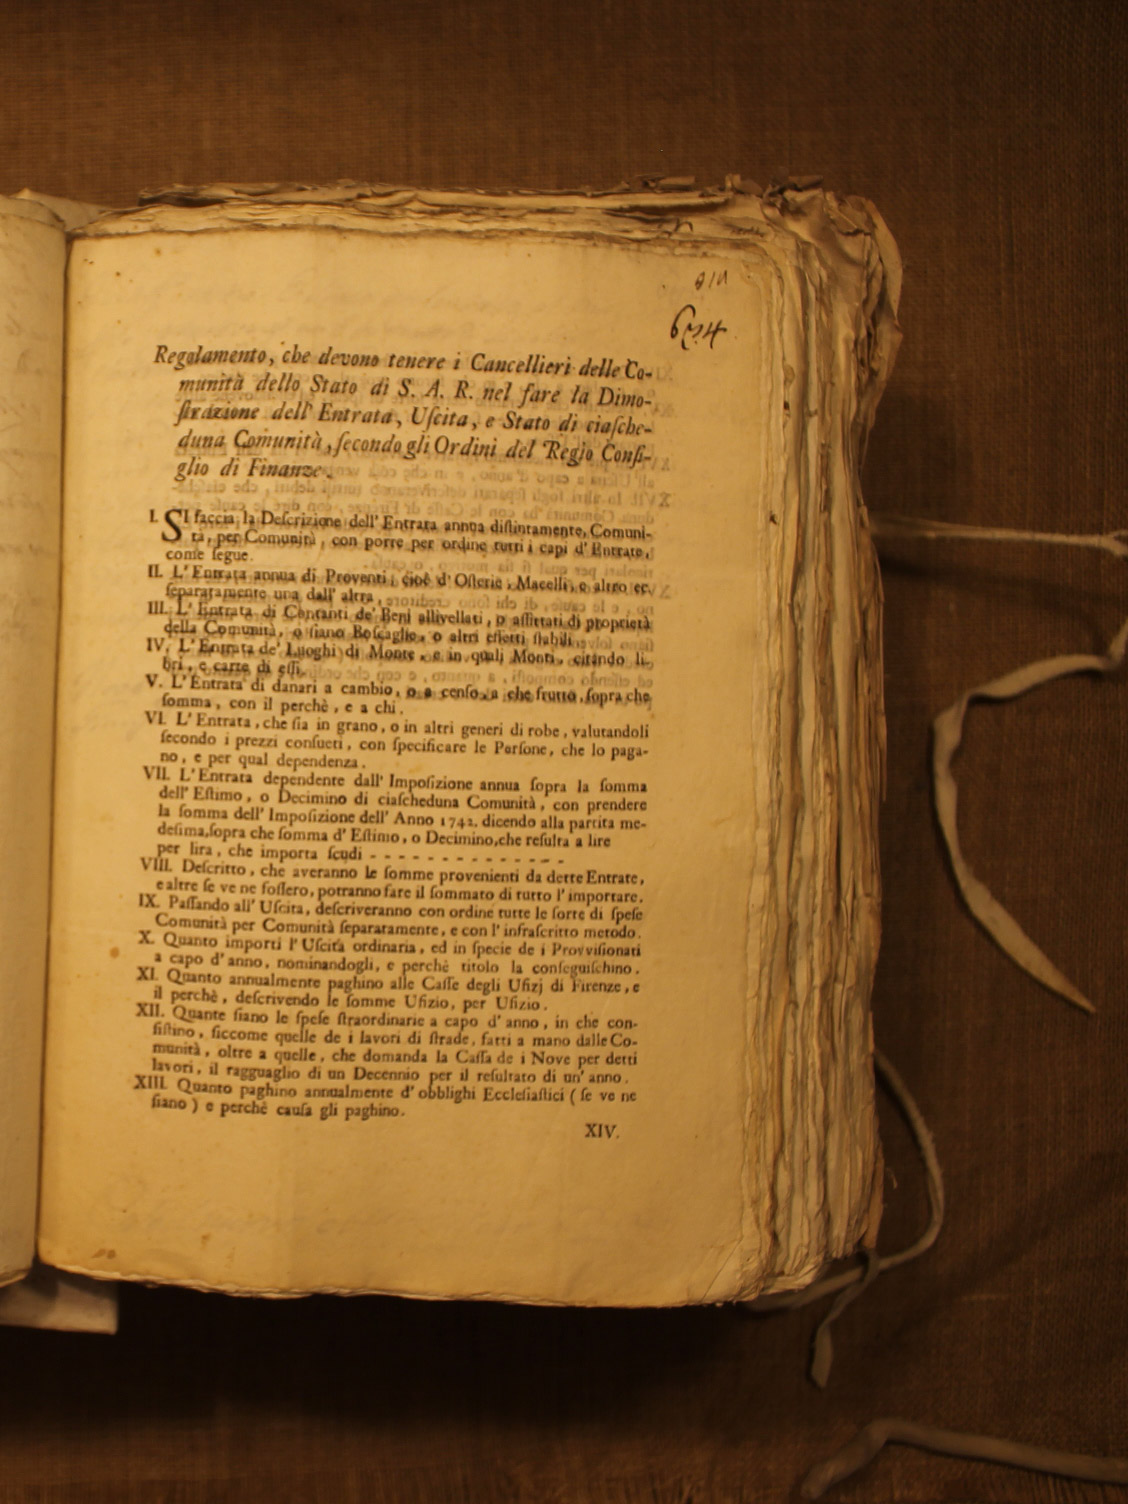 654
Regolamento, che devono tenere i Cancellieri delle Co-
munità dello Stato di S. A. R. nel fare la Dimo-
ſtrazione dell' Entrata, Uſcita, e Stato di ciaſche-
duna Comunità, ſecondo gli Ordini del Regio Conſi-
glio di Finanze.
I. SI faccia la Deſcrizione dell' Entrata annua diſtintamente, Comuni-
tà, per Comunità, con porre per ordine tutti i capi d' Entrate,
come ſegue.
II. L' Entrata annua di Proventi, cioè d' Oſterie, Macelli, e altro ec.
ſeparatamente una dall' altra.
III. L' Entrata di Contanti de' Beni allivellati, o affittati di proprietà
della Comunità, o ſiano Boſcaglie, o altri effetti ſtabili.
IV. L' Entrata de' Luoghi di Monte, e in quali Monti, citando li-
bri, e carte di eſſi.
V. L' Entrata di danari a cambio, o a cenſo, a che frutto, ſopra che
ſomma, con il perchè, e a chi.
VI. L' Entrata, che ſia in grano, o in altri generi di robe, valutandoli
ſecondo i prezzi conſueti, con ſpecificare le Perſone, che lo paga-
no, e per qual dependenza.
VII. L' Entrata dependente dall' Impoſizione annua ſopra la ſomma
dell' Eſtimo, o Decimino di ciaſcheduna Comunità, con prendere
la ſomma dell' Impoſizione dell' Anno 1742. dicendo alla partita me-
deſima, ſopra che ſomma d' Eſtimo, o Decimino, che reſulta a lire
per lira, che importa ſcudi - - - - - - - - - - - - - -
VIII. Deſcritto, che averanno le ſomme provenienti da dette Entrate,
e altre ſe ve ne foſſero, potranno fare il ſommato di tutto l' importare.
IX. Paſſando all' Uſcita, deſcriveranno con ordine tutte le ſorte di ſpeſe
Comunità per Comunità ſeparatamente, e con l' infraſcritto metodo.
X. Quanto importi l' Uſcita ordinaria, ed in ſpecie de i Provviſionati
a capo d' anno, nominandogli, e perchè titolo la conſeguiſchino.
XI. Quanto annualmente paghino alle Caſſe degli Ufizj di Firenze, e
il perchè, deſcrivendo le ſomme Ufizio, per Ufizio.
XII. Quante ſiano le ſpeſe ſtraordinarie a capo d' anno, in che con-
ſiſtino, ſiccome quelle de i lavori di ſtrade, fatti a mano dalle Co-
munità, oltre a quelle, che domanda la Caſſa de i Nove per detti
lavori, il ragguaglio di un Decennio per il reſultato di un' anno.
XIII. Quanto paghino annualmente d' obblighi Eccleſiaſtici ( ſe ve ne
ſiano ) e perchè cauſa gli paghino.
XIV.